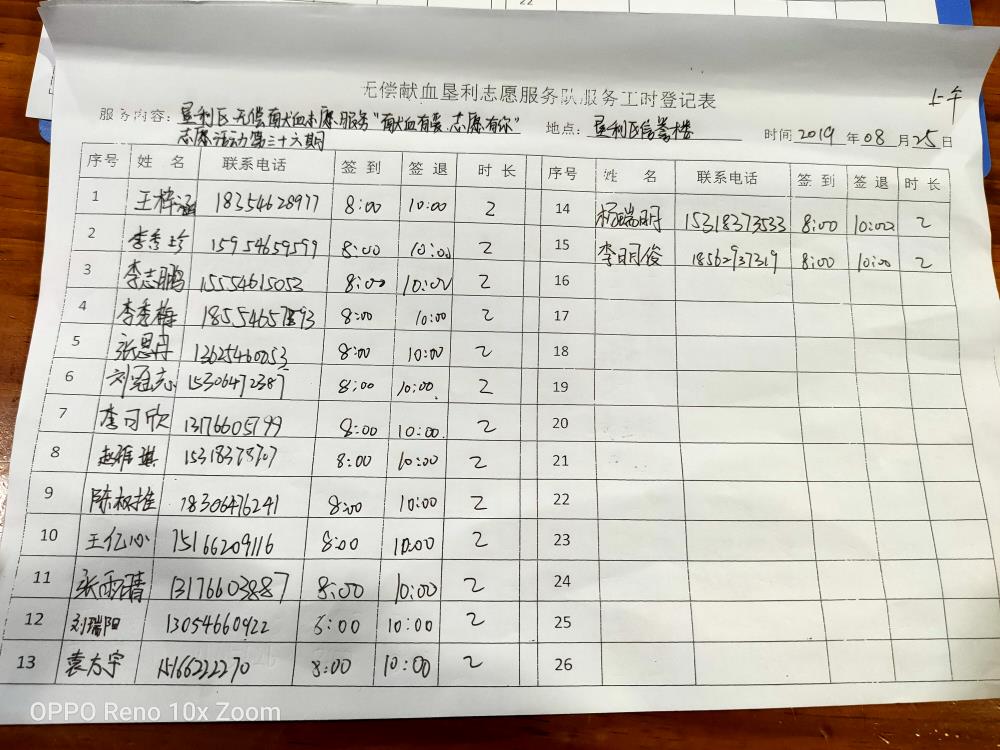 22
无偿献血垦利志愿服务队服务工时登记表
上午
服务内容：垦利区无偿献血志愿服务“献血有爱，志愿有你”
志愿活动第三十六期
地点：垦利区信誉楼
时间 2019 年 08 月 25 日
序号 姓名 联系电话 签到 签退 时长 序号 姓名 联系电话 签到 签退 时长
1 王梓涵 18354628977 8:00 10:00 2 14 杨瑞明 15318373533 8:00 10:00 2
2 李秀珍 15954659599 8:00 10:00 2 15 李明俊 18562937319 8:00 10:00 2
3 李志鹏 15554615053 8:00 10:00 2 16
4 李秀梅 8:00 10:00 2 17
5 张恩丹 13625460053 8:00 10:00 2 18
6 刘冠志 15306472387 8:00 10:00 2 19
7 李可欣 13176605799 8:00 10:00 2 20
8 赵雅琪 8:00 10:00 2 21
9 18306476241 8:00 10:00 2 22
10 王亿心 15166209116 8:00 10:00 2 23
11 张雨晴 13176603887 8:00 10:00 2 24
12 刘瑞阳 13054660922 8:00 10:00 2 25
13 袁方宇 15166222270 8:00 10:00 2 26
OPPO Reno 10x Zoom